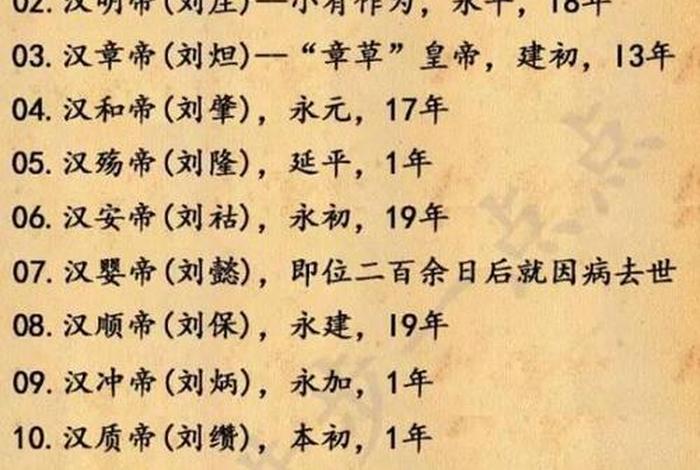 02. 汉明帝(刘庄)—小有作为，永平，18年
03. 汉章帝(刘炟)—“章草”皇帝，建初，13年
04. 汉和帝(刘肇)，永元，17年
05. 汉殇帝(刘隆)，延平，1年
06. 汉安帝(刘祜)，永初，19年
07. 汉婴帝(刘懿)，即位二百余日后就因病去世
08. 汉顺帝(刘保)，永建，19年
09. 汉冲帝(刘炳)，永加，1年
10. 汉质帝(刘缵)，本初，1年